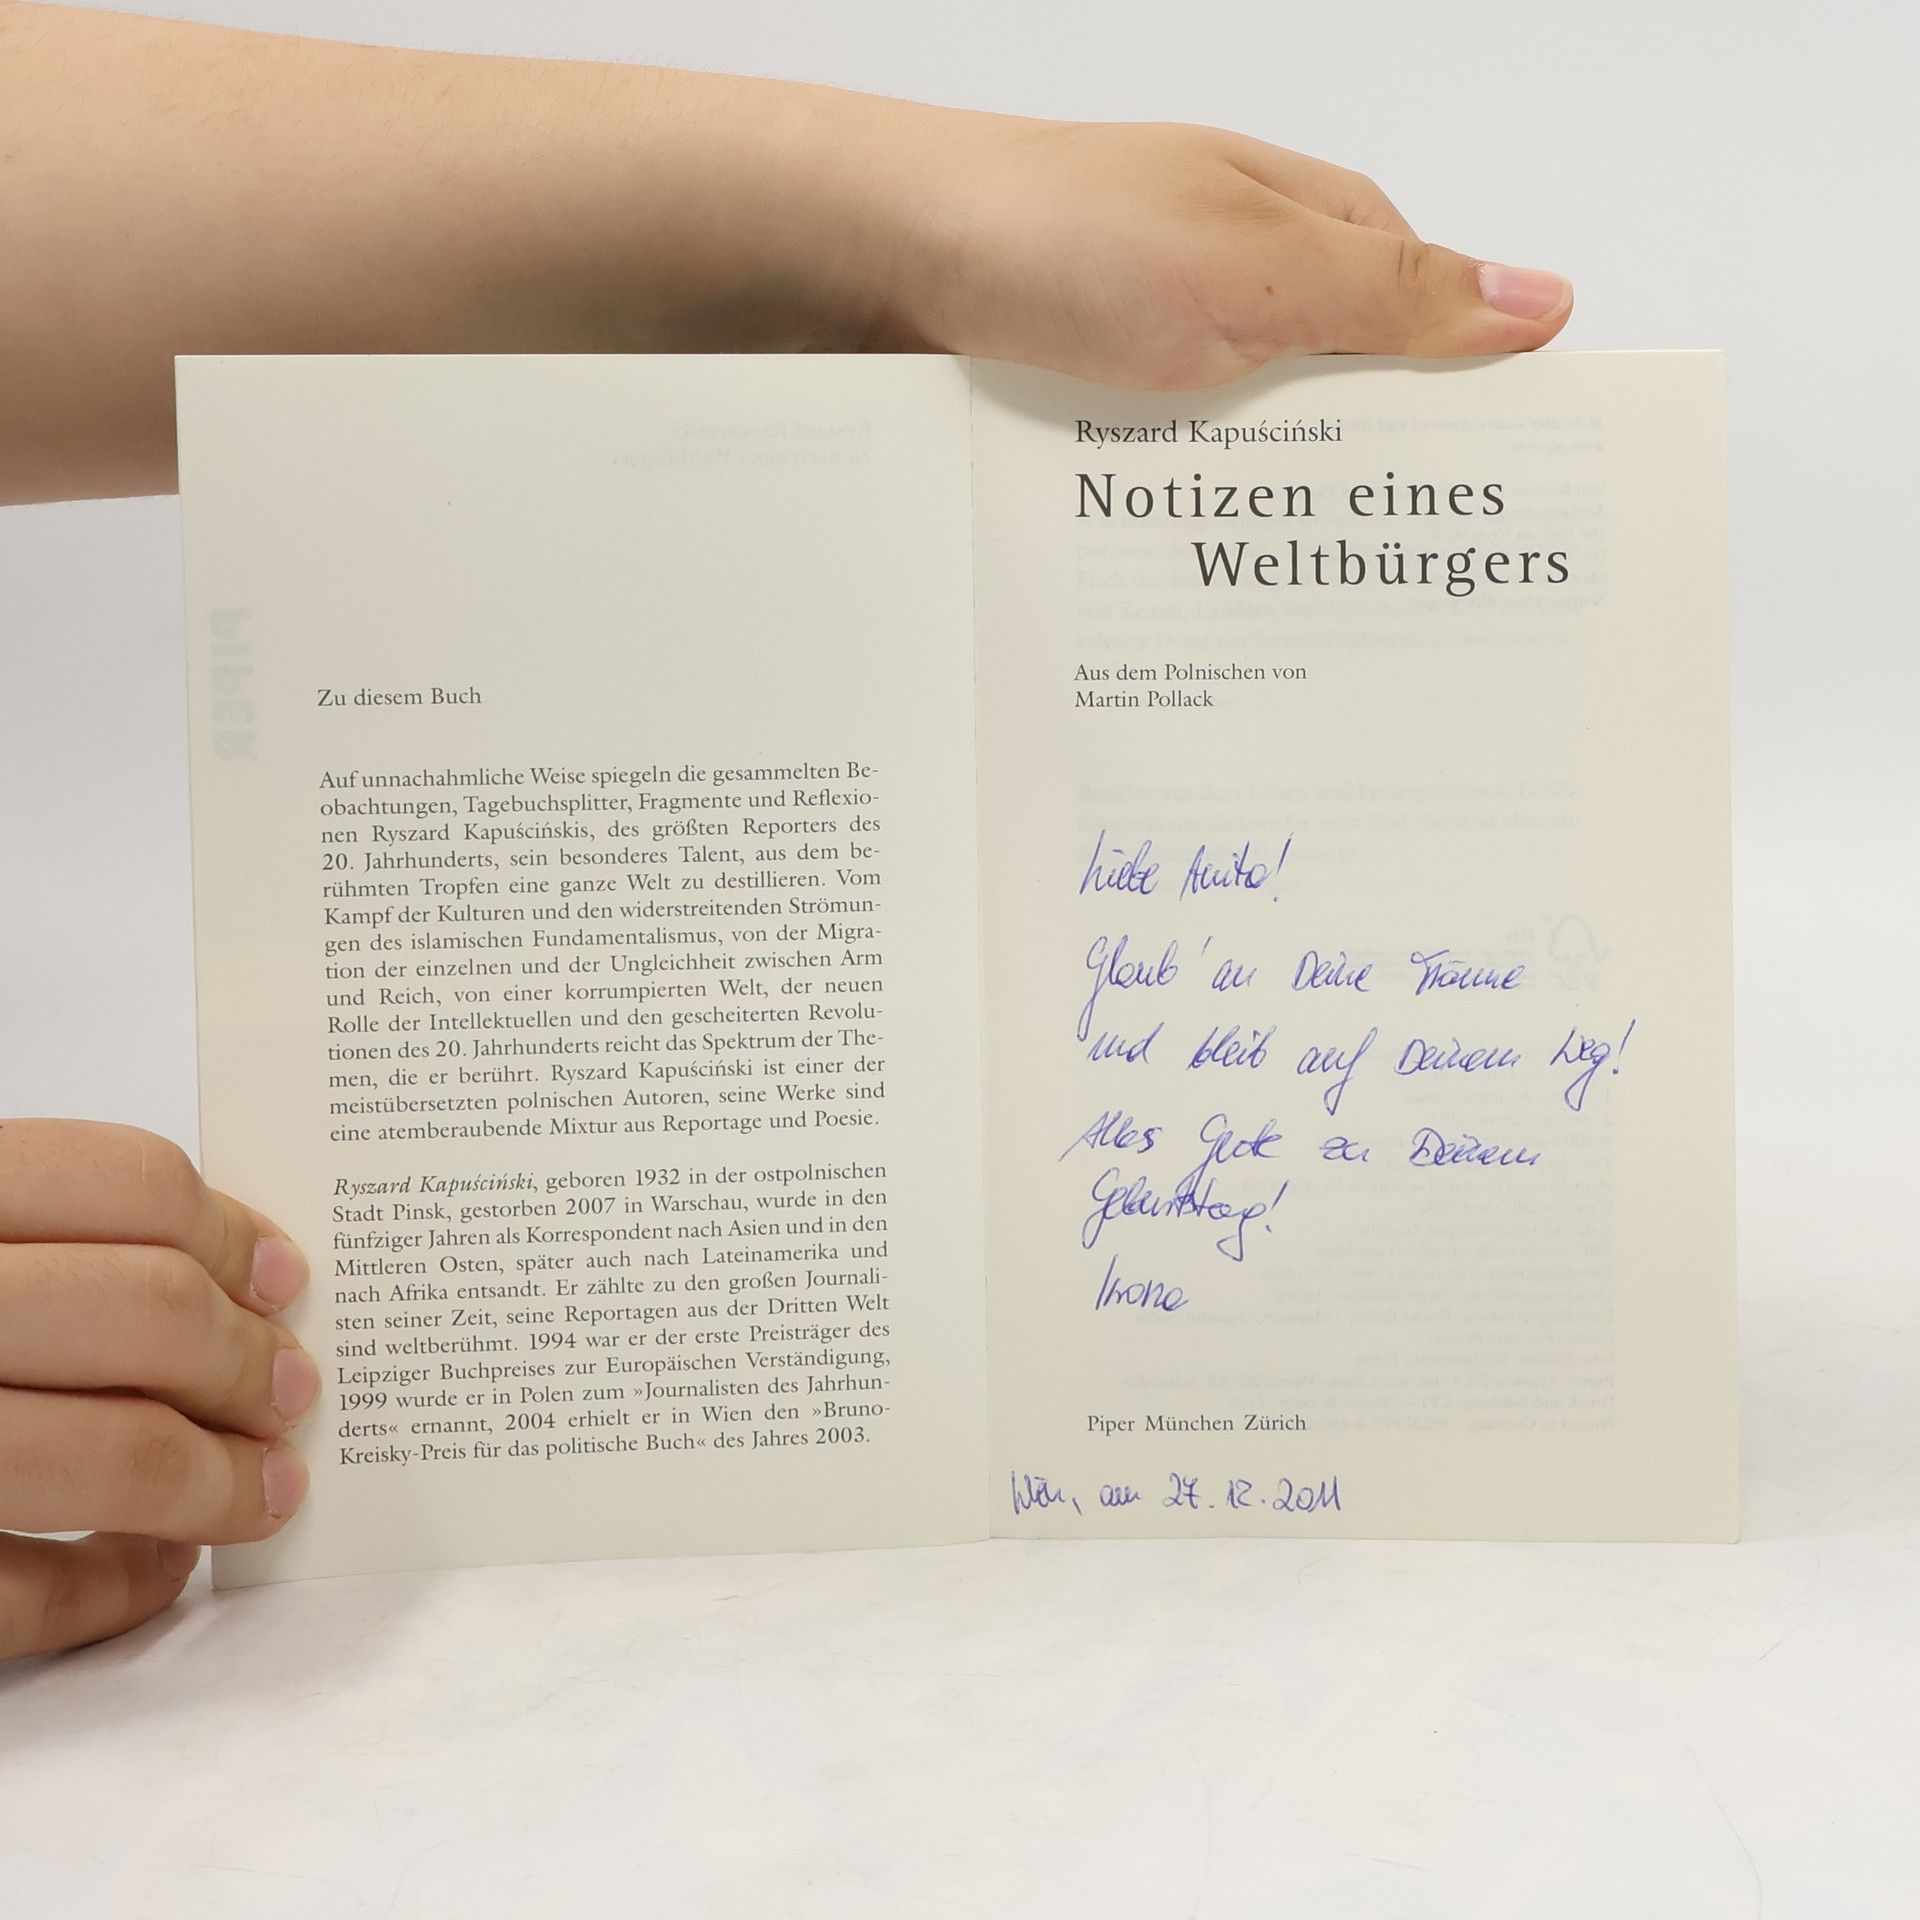 Zu diesem Buch
Auf unnachahmliche Weise spiegeln die gesammelten Be-
obachtungen, Tagebuchsplitter, Fragmente und Reflexio-
nen Ryszard Kapuścińskis, des größten Reporters des
20. Jahrhunderts, sein besonderes Talent, aus dem be-
rühmten Tropfen eine ganze Welt zu destillieren. Vom
Kampf der Kulturen und den widerstreitenden Strömun-
gen des islamischen Fundamentalismus, von der Migra-
tion der einzelnen und der Ungleichheit zwischen Arm
und Reich, von einer korrumpierten Welt, der neuen
Rolle der Intellektuellen und den gescheiterten Revolu-
tionen des 20. Jahrhunderts reicht das Spektrum der The-
men, die er berührt. Ryszard Kapuściński ist einer der
meistübersetzten polnischen Autoren, seine Werke sind
eine atemberaubende Mixtur aus Reportage und Poesie.
Ryszard Kapuściński, geboren 1932 in der ostpolnischen
Stadt Pinsk, gestorben 2007 in Warschau, wurde in den
fünfziger Jahren als Korrespondent nach Asien und in den
Mittleren Osten, später auch nach Lateinamerika und
nach Afrika entsandt. Er zählte zu den großen Journali-
sten seiner Zeit, seine Reportagen aus der Dritten Welt
sind weltberühmt. 1994 war er der erste Preisträger des
Leipziger Buchpreises zur Europäischen Verständigung,
1999 wurde er in Polen zum »Journalisten des Jahrhun-
derts« ernannt, 2004 erhielt er in Wien den »Bruno-
Kreisky-Preis für das politische Buch« des Jahres 2003.
Ryszard Kapuściński
Notizen eines
Weltbürgers
Aus dem Polnischen von
Martin Pollack
Liebe Anita!
Glaub' an Deine Träume
und bleib auf Deinem Weg!
Alles Gute zu Deinem
Geburtstag!
Piper München Zürich
Wien, am 27.12.2011